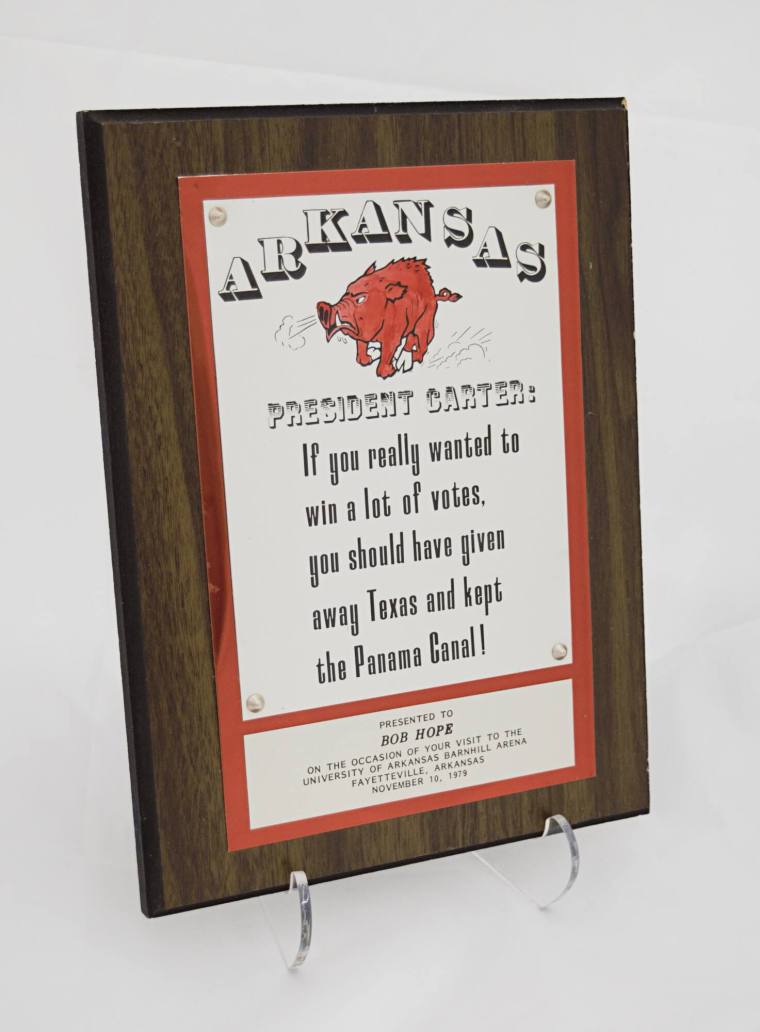 ARKANSAS
PRESIDENT CARTER:
If you really wanted to
win a lot of votes,
you should have given
away Texas and kept
the Panama Canal!
PRESENTED TO
BOB HOPE
ON THE OCCASION OF YOUR VISIT TO THE
UNIVERSITY OF ARKANSAS BARNHILL ARENA
FAYETTEVILLE, ARKANSAS
NOVEMBER 10, 1979